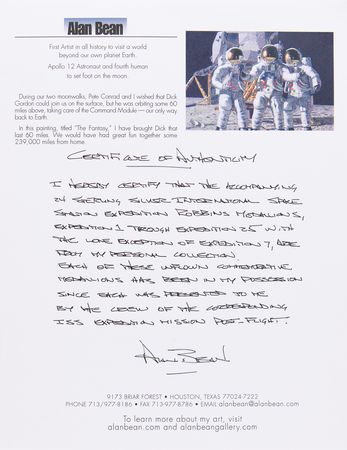 Alan Bean
First Artist in all history to visit a world
beyond our own planet Earth.
Apollo 12 Astronaut and fourth human
to set foot on the moon.
During our two moonwalks, Pete Conrad and I wished that Dick
Gordon could join us on the surface, but he was orbiting some 60
miles above, taking care of the Command Module — our only way
back to Earth.
In this painting, titled "The Fantasy," I have brought Dick that
last 60 miles. We would have had great fun together some
239,000 miles from home.
CERTIFICATE OF AUTHENTICITY
I HEREBY CERTIFY THAT THE ACCOMPANYING
24 STERLING SILVER INTERNATIONAL SPACE
STATION EXPEDITION ROBBINS MEDALLIONS,
EXPEDITION 1 THROUGH EXPEDITION 25 WITH
THE LONE EXCEPTION OF EXPEDITION 7, ARE
FROM MY PERSONAL COLLECTION.
EACH OF THESE UNFLOWN COMMEMORATIVE
MEDALLIONS HAS BEEN IN MY POSSESSION
SINCE EACH WAS PRESENTED TO ME
BY THE CREW OF THE CORRESPONDING
ISS EXPEDITION MISSION POST-FLIGHT.
ALAN BEAN
9173 BRIAR FOREST • HOUSTON, TEXAS 77024-7222
PHONE 713/977-8186 • FAX 713-977-8786 • EMAIL alanbean@alanbean.com
To learn more about my art, visit
alanbean.com and alanbeangallery.com